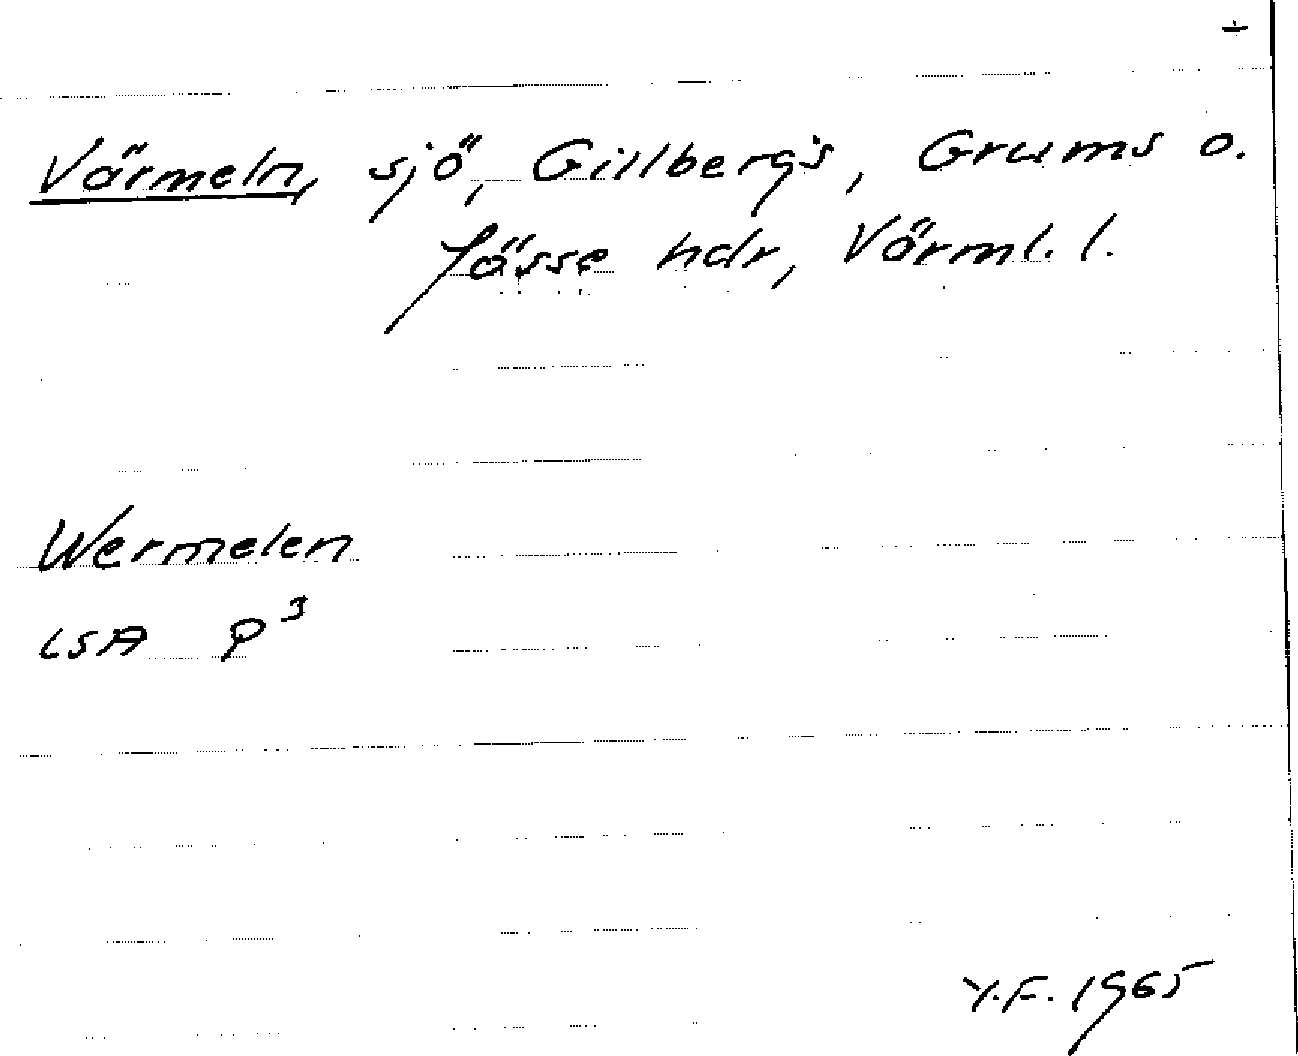 +
Värmeln, sjö, Gillbergs, Grums o.
Jösse hdr, Värml. l.
Wermelen
LSA P3
Y.F. 1965